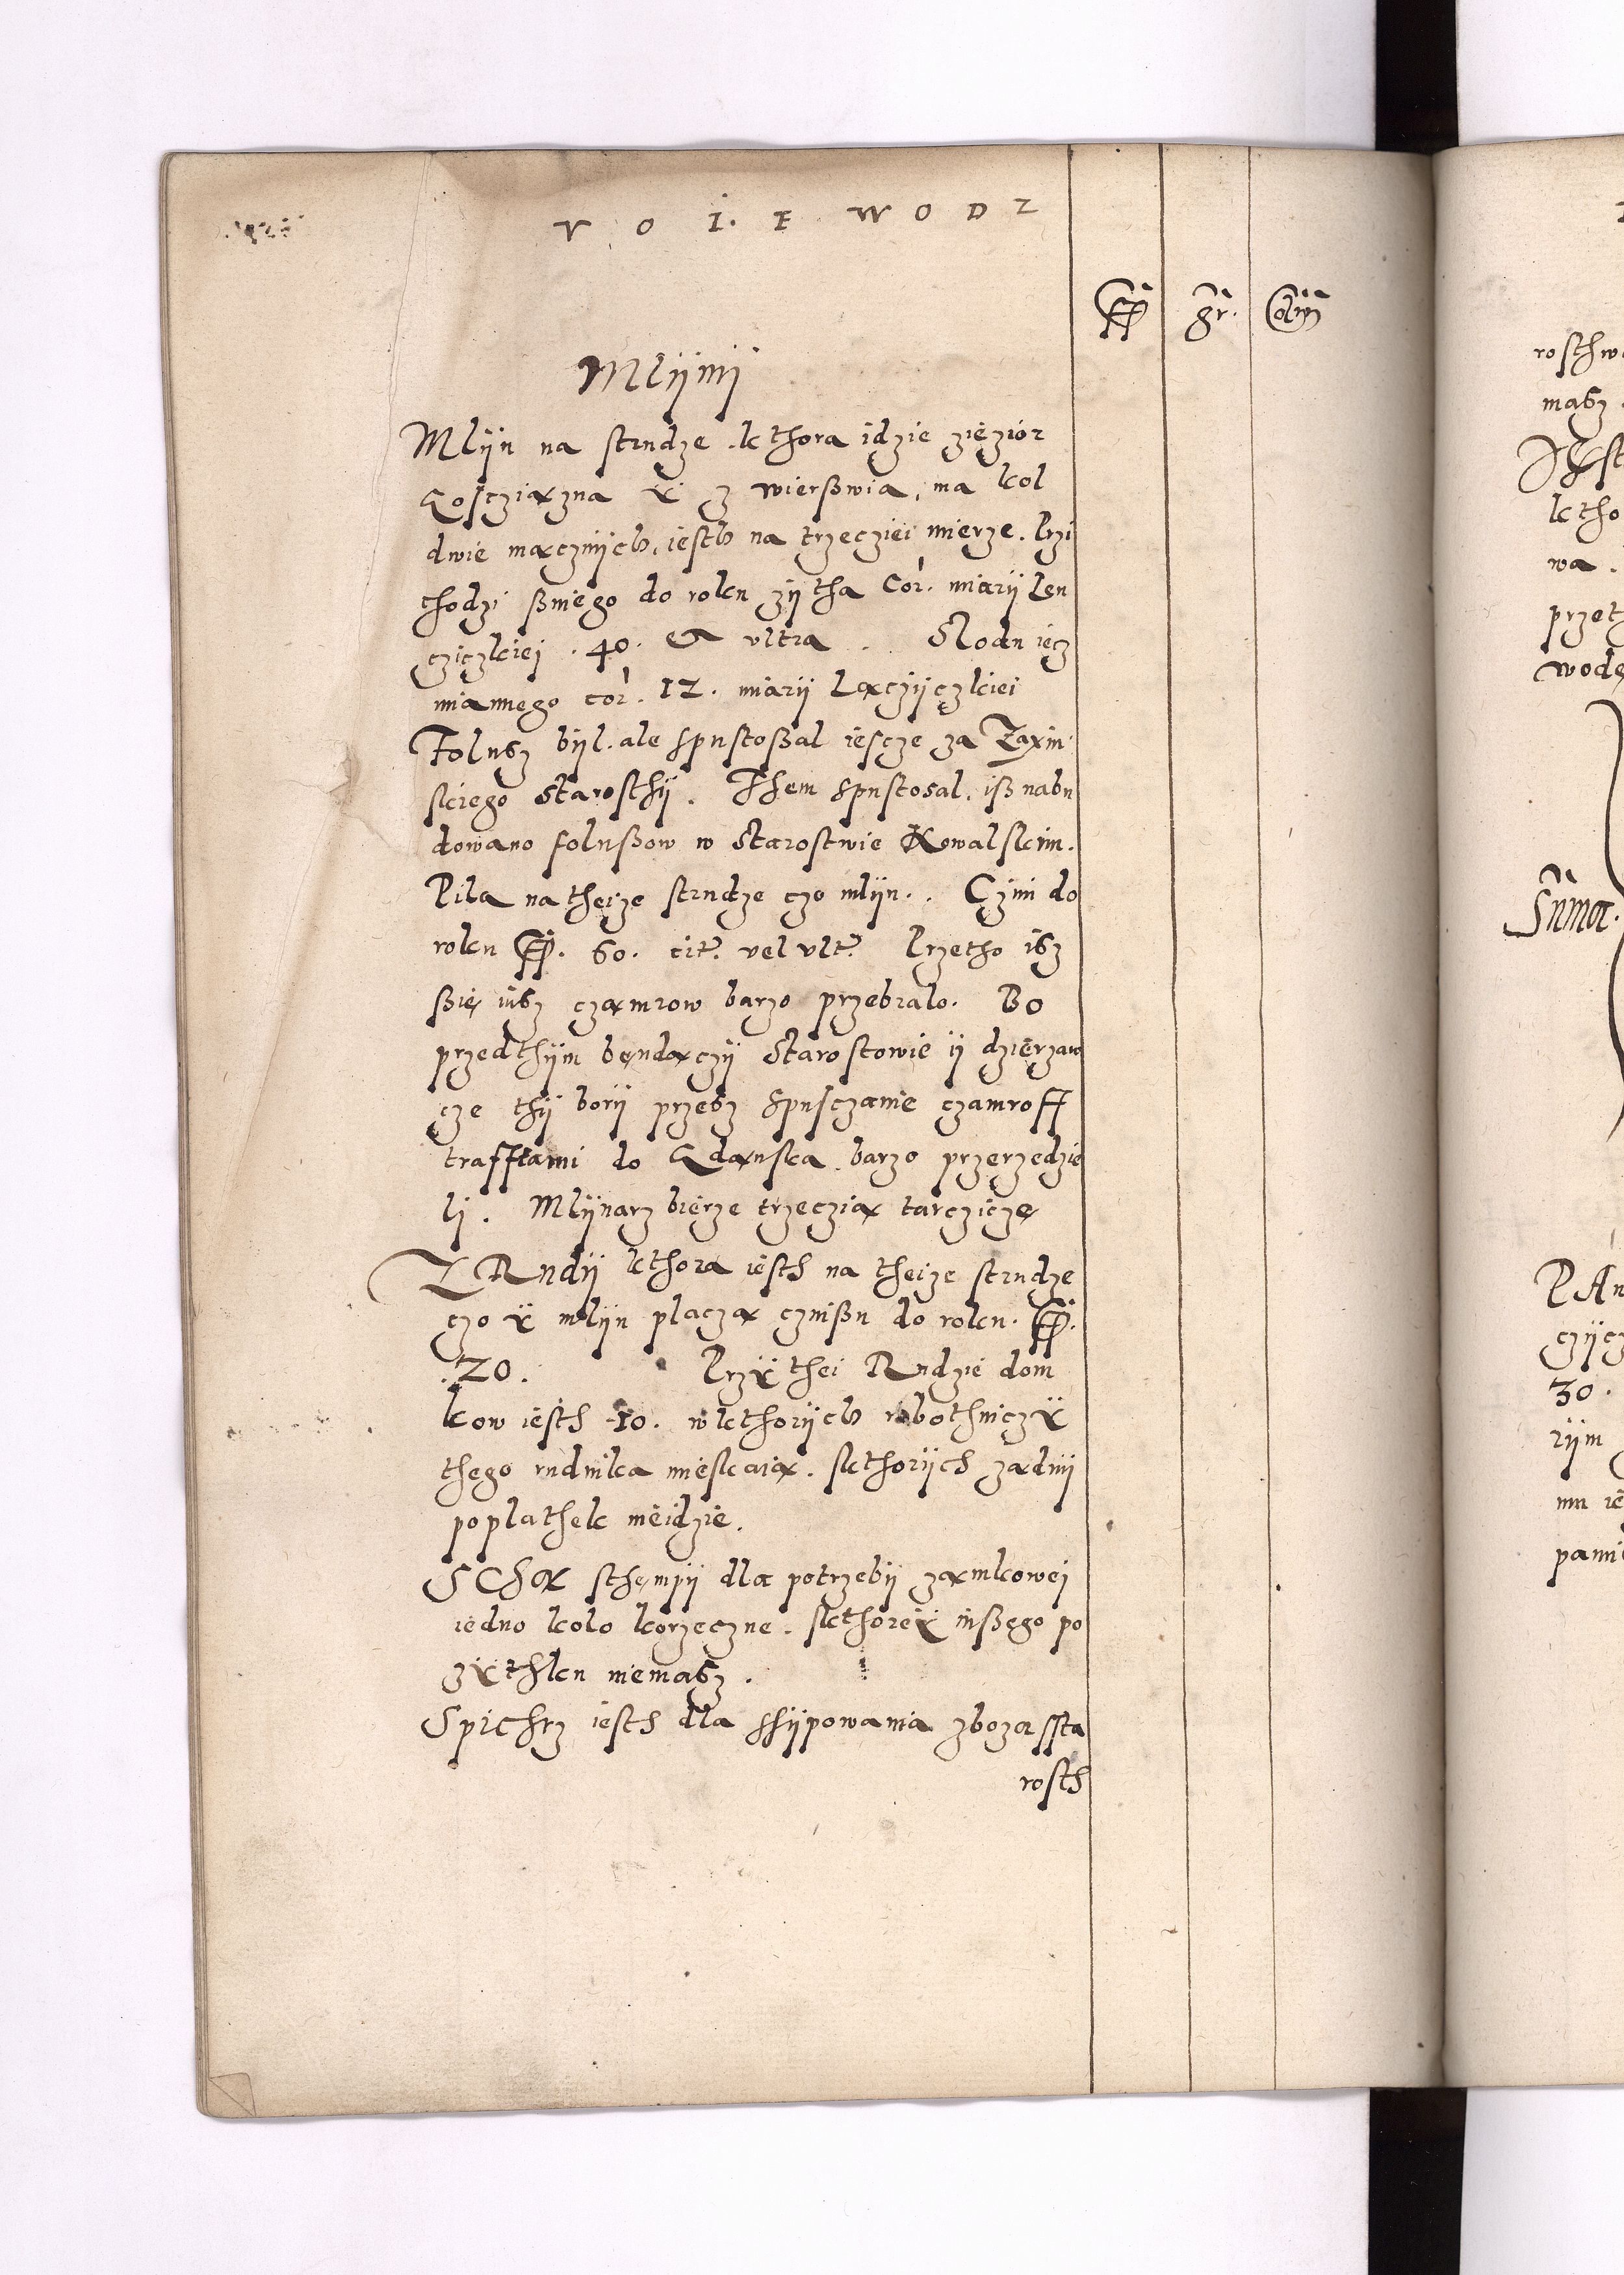 V O I. E WODZ
fl gr. den
Mlÿnÿ
Mlÿn na strudze kthora idzie zięzior
Goscziąrzna ÿ z wierßwia, ma kol
dwie mącznÿch, iesth na trzecziei mierze. Przi
chodzi ßniego do roku zÿtha Cor. miarÿ Len
cziczkiej . 40. et vltra . Slodu iecz
miannego cor. 12. miarÿ Lączÿczkiei
Folusz bÿl. ale spustoßal iescze za Zaxin
skiego starosthÿ. Them spustosal, iß nabu
dowano folußow w Starostwie Kowalskim.
Pila na theize strudze czo mlÿn. . Czini do
roku fl. 60. cit. vel vlt. Przetho isz
ßię iusz czamrow barzo przebralo. Bo
przedthÿm będączÿ Starostowie ÿ dzierzaw
cze thÿ borÿ przesz spusczanie czamroff
trafftami do Gdanska barzo przerzedzie
lj. Mlÿnarz bierze trzeczią tarczicze
Z Rudÿ kthora iesth na theize strudze
czo ÿ mlÿn placzą czinßu do roku. fl.
.20. Przÿ thei Rudzie dom
kow iesth .10. wkthorÿch robothniczÿ
thego rudnika mieskaią. skthorÿch żadnÿ
poplathek nieidzie.
SChą sthempÿ dla potrzebÿ zamkowei
iedno kolo korzeczne. skthoreÿ inßego po
zÿthku niemasz.
Spichrz iesth dla ssÿpowania zboza ssta
rosth
rosthw
masz
Jest
ktho
wa.
przet
wode
Suma.
PAn
czÿcz
30.
rÿm
mu ie
pami